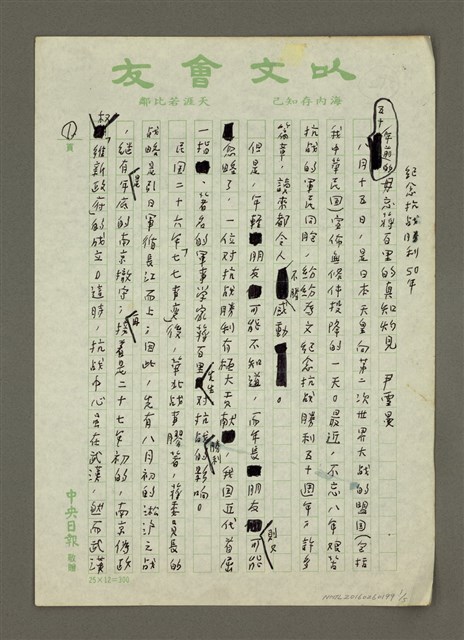 以文會友
海內存知己
天涯若比鄰
紀念抗战勝利50年
五十年前的毋忘蔣百里的真知灼見 尹雪曼
八月十五日，是日本天皇向第二次世界大战的盟国（包括
我中華民国）宣佈無條件投降的一天。最近，不忘八年艰苦
抗战的軍民同胞，紛紛为文紀念抗战勝利五十週年；許多
篇章，讀來都令人不勝感動。
但是，年輕朋友可能不知道，而年長朋友則又可能
忽略了，一位对抗战勝利有极大貢献，我国近代首屈
一指、著名的軍事学家蔣百里先生对抗战勝利的影响。
民国二十六年「七七事变」後，華北战事膠着，蔣委員長的
战略是引日軍循長江而上；因此，先有八月初的淞沪之战
，继有年底的南京撤守；接着是二十七年初的，南京偽政
权維新政府的成立。這時，抗战中心虽在武漢，然而武漢
1頁
中央日報 敬贈
25×12=300
NMTL20160260199 1/5